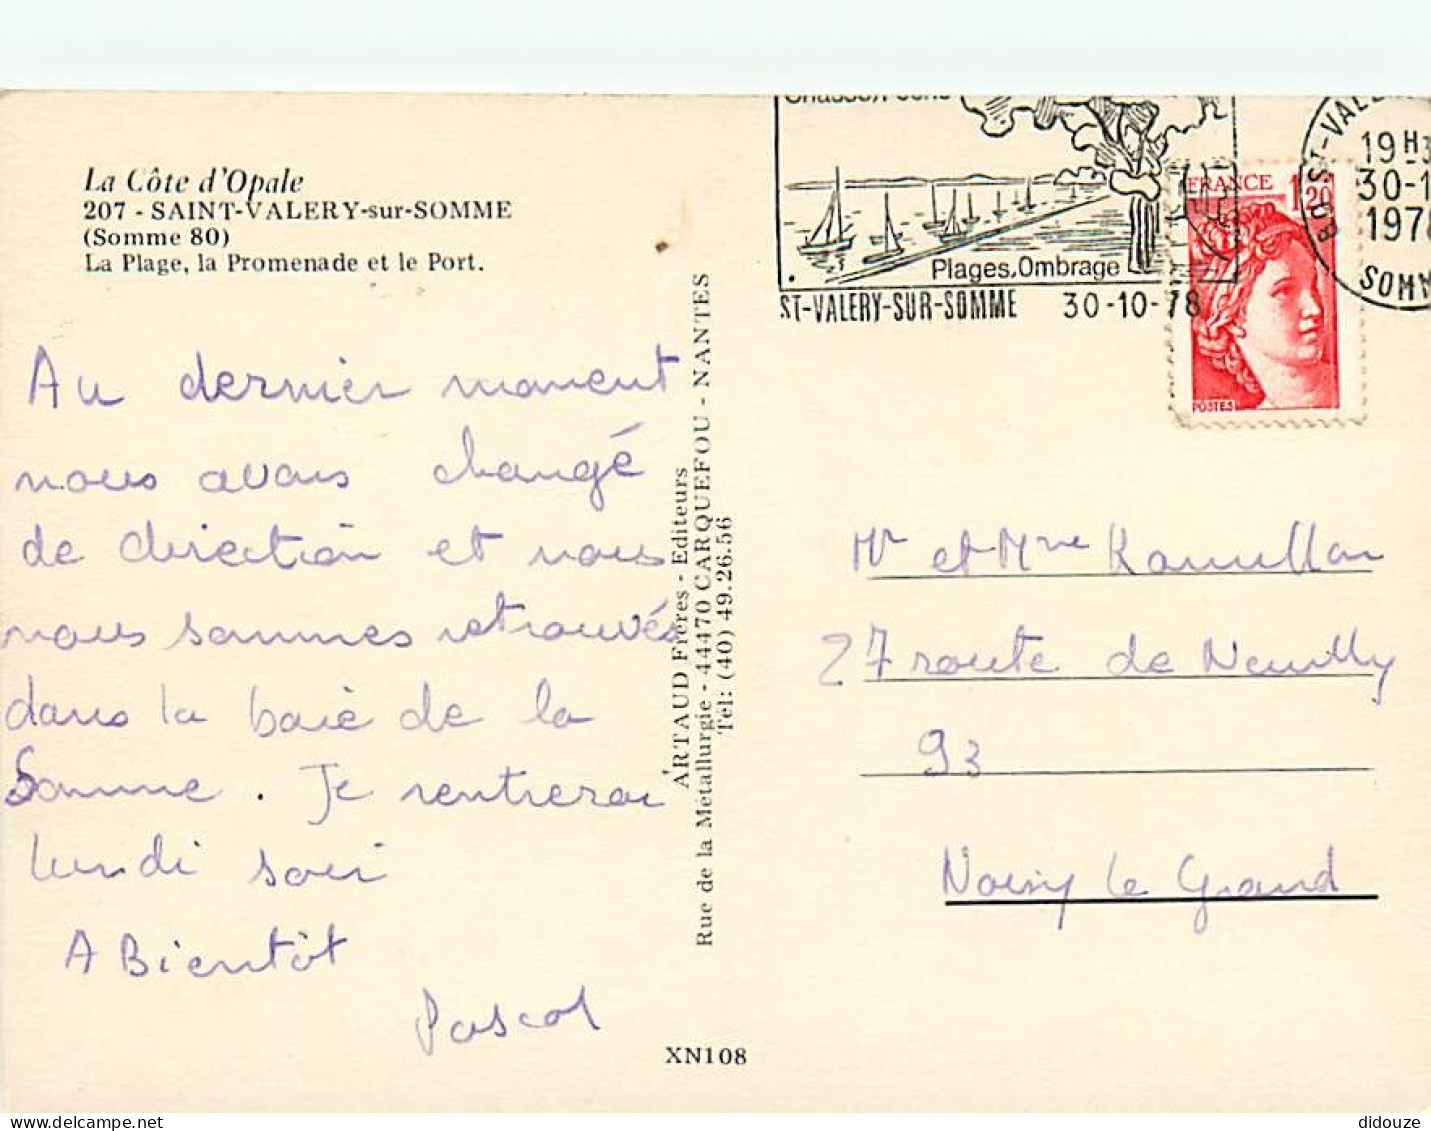 La Côte d'Opale
207 - SAINT-VALERY-sur-SOMME
(Somme 80)
La Plage, la Promenade et le Port.
Au dernier moment
nous avons changé
de direction et nous
nous sommes retrouvés
dans la baie de la
Somme. Je rentrerai
lundi soir
A Bientôt
Pascal
ARTAUD Frères - Editeurs
Rue de la Métallurgie - 44470 CARQUEFOU - NANTES
Tél: (40) 49.26.56
XN108
Plages, Ombrage
ST-VALERY-SUR-SOMME 30-10-78
FRANCE 1,20
POSTES
80 ST-VAL
19H3
30-1
1978
SOMM
Mr et Mme
27 route de Neuilly
93
Noisy le Grand
didouze